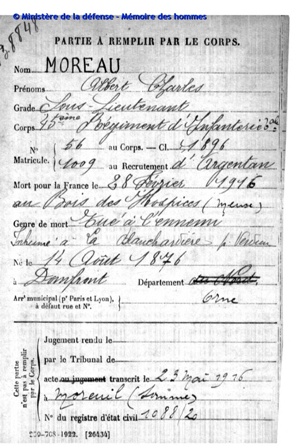 © Ministère de la défense - Mémoire des hommes
PARTIE A REMPLIR PAR LE CORPS.
Nom MOREAU
Prénoms Albert Charles
Grade Sous-Lieutenant
Corps Régiment d'Infanterie
N° 56 au Corps. — Cl. 1896
Matricule. 1009 au Recrutement d'Argentan
Mort pour la France le 28 Février 1916
au Bois des Hospices (Meuse)
Genre de mort Tué à l'ennemi
Inhumé à la
Né le 14 Août 1876
à Domfront Département du Nord
Arr^t municipal (p^r Paris et Lyon), Orne
à défaut rue et N°.
Cette partie n'est pas à remplir par le Corps.
Jugement rendu le
par le Tribunal de
acte ou jugement transcrit le 23 Mai 1916
à Moreuil (Somme)
N° du registre d'état civil 1088/20
1922. [26434]